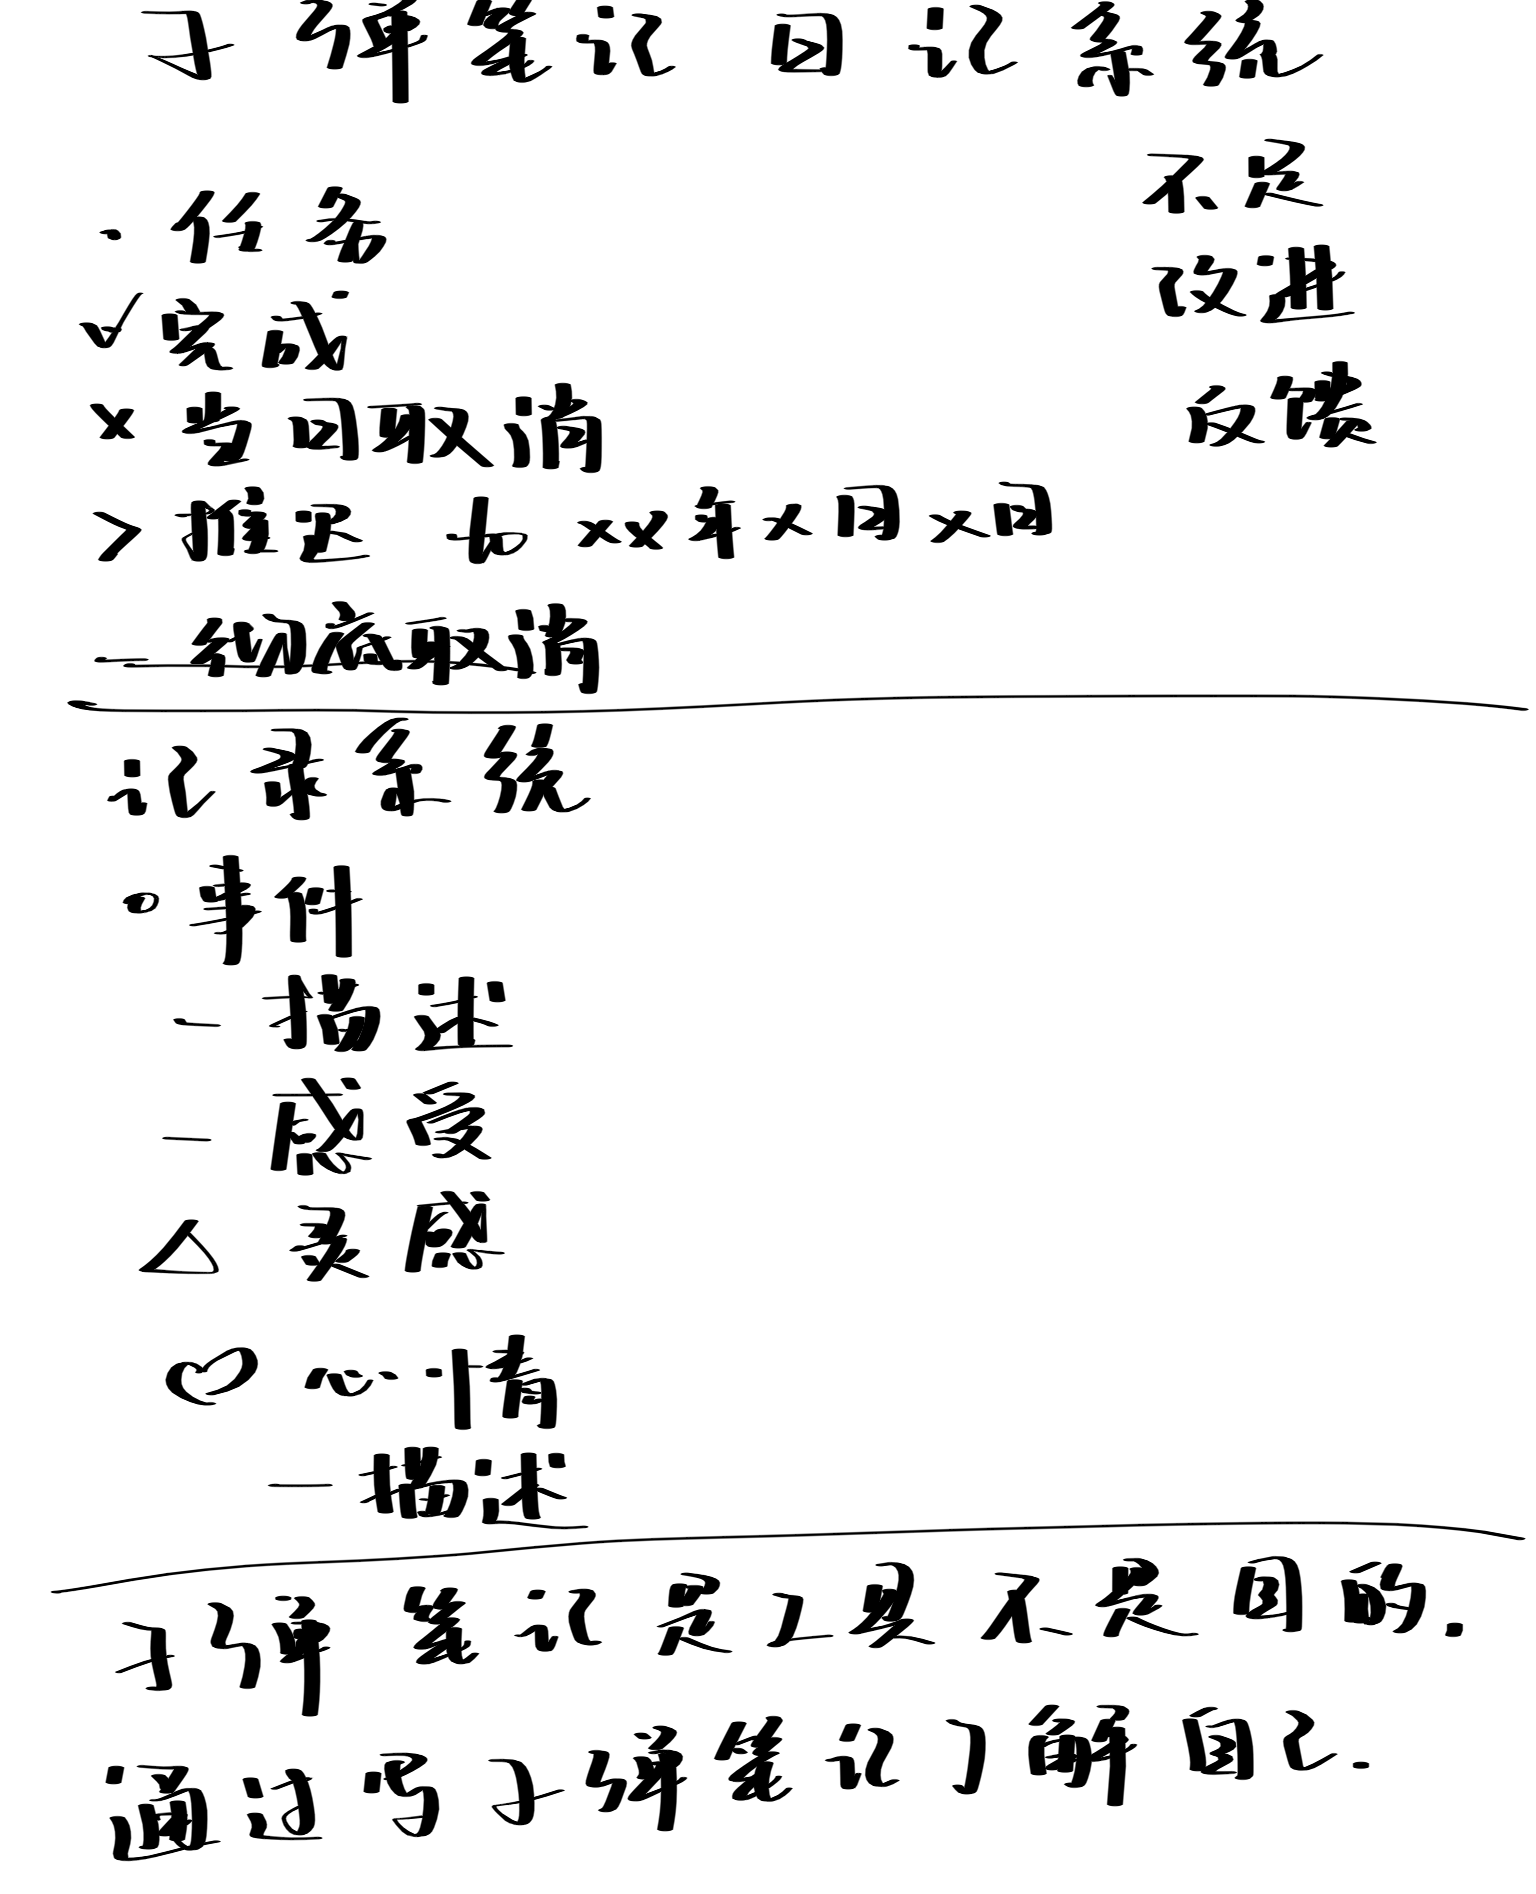 子弹笔记 日记系统
不足
· 任务
改进
✓ 完成
反馈
× 当日取消
> 推迟 to xx年x月x日
— 彻底取消
记录系统
○ 事件
- 描述
- 感受
△ 灵感
♡ 心情
- 描述
子弹笔记是工具不是目的.
通过写子弹笔记了解自己.